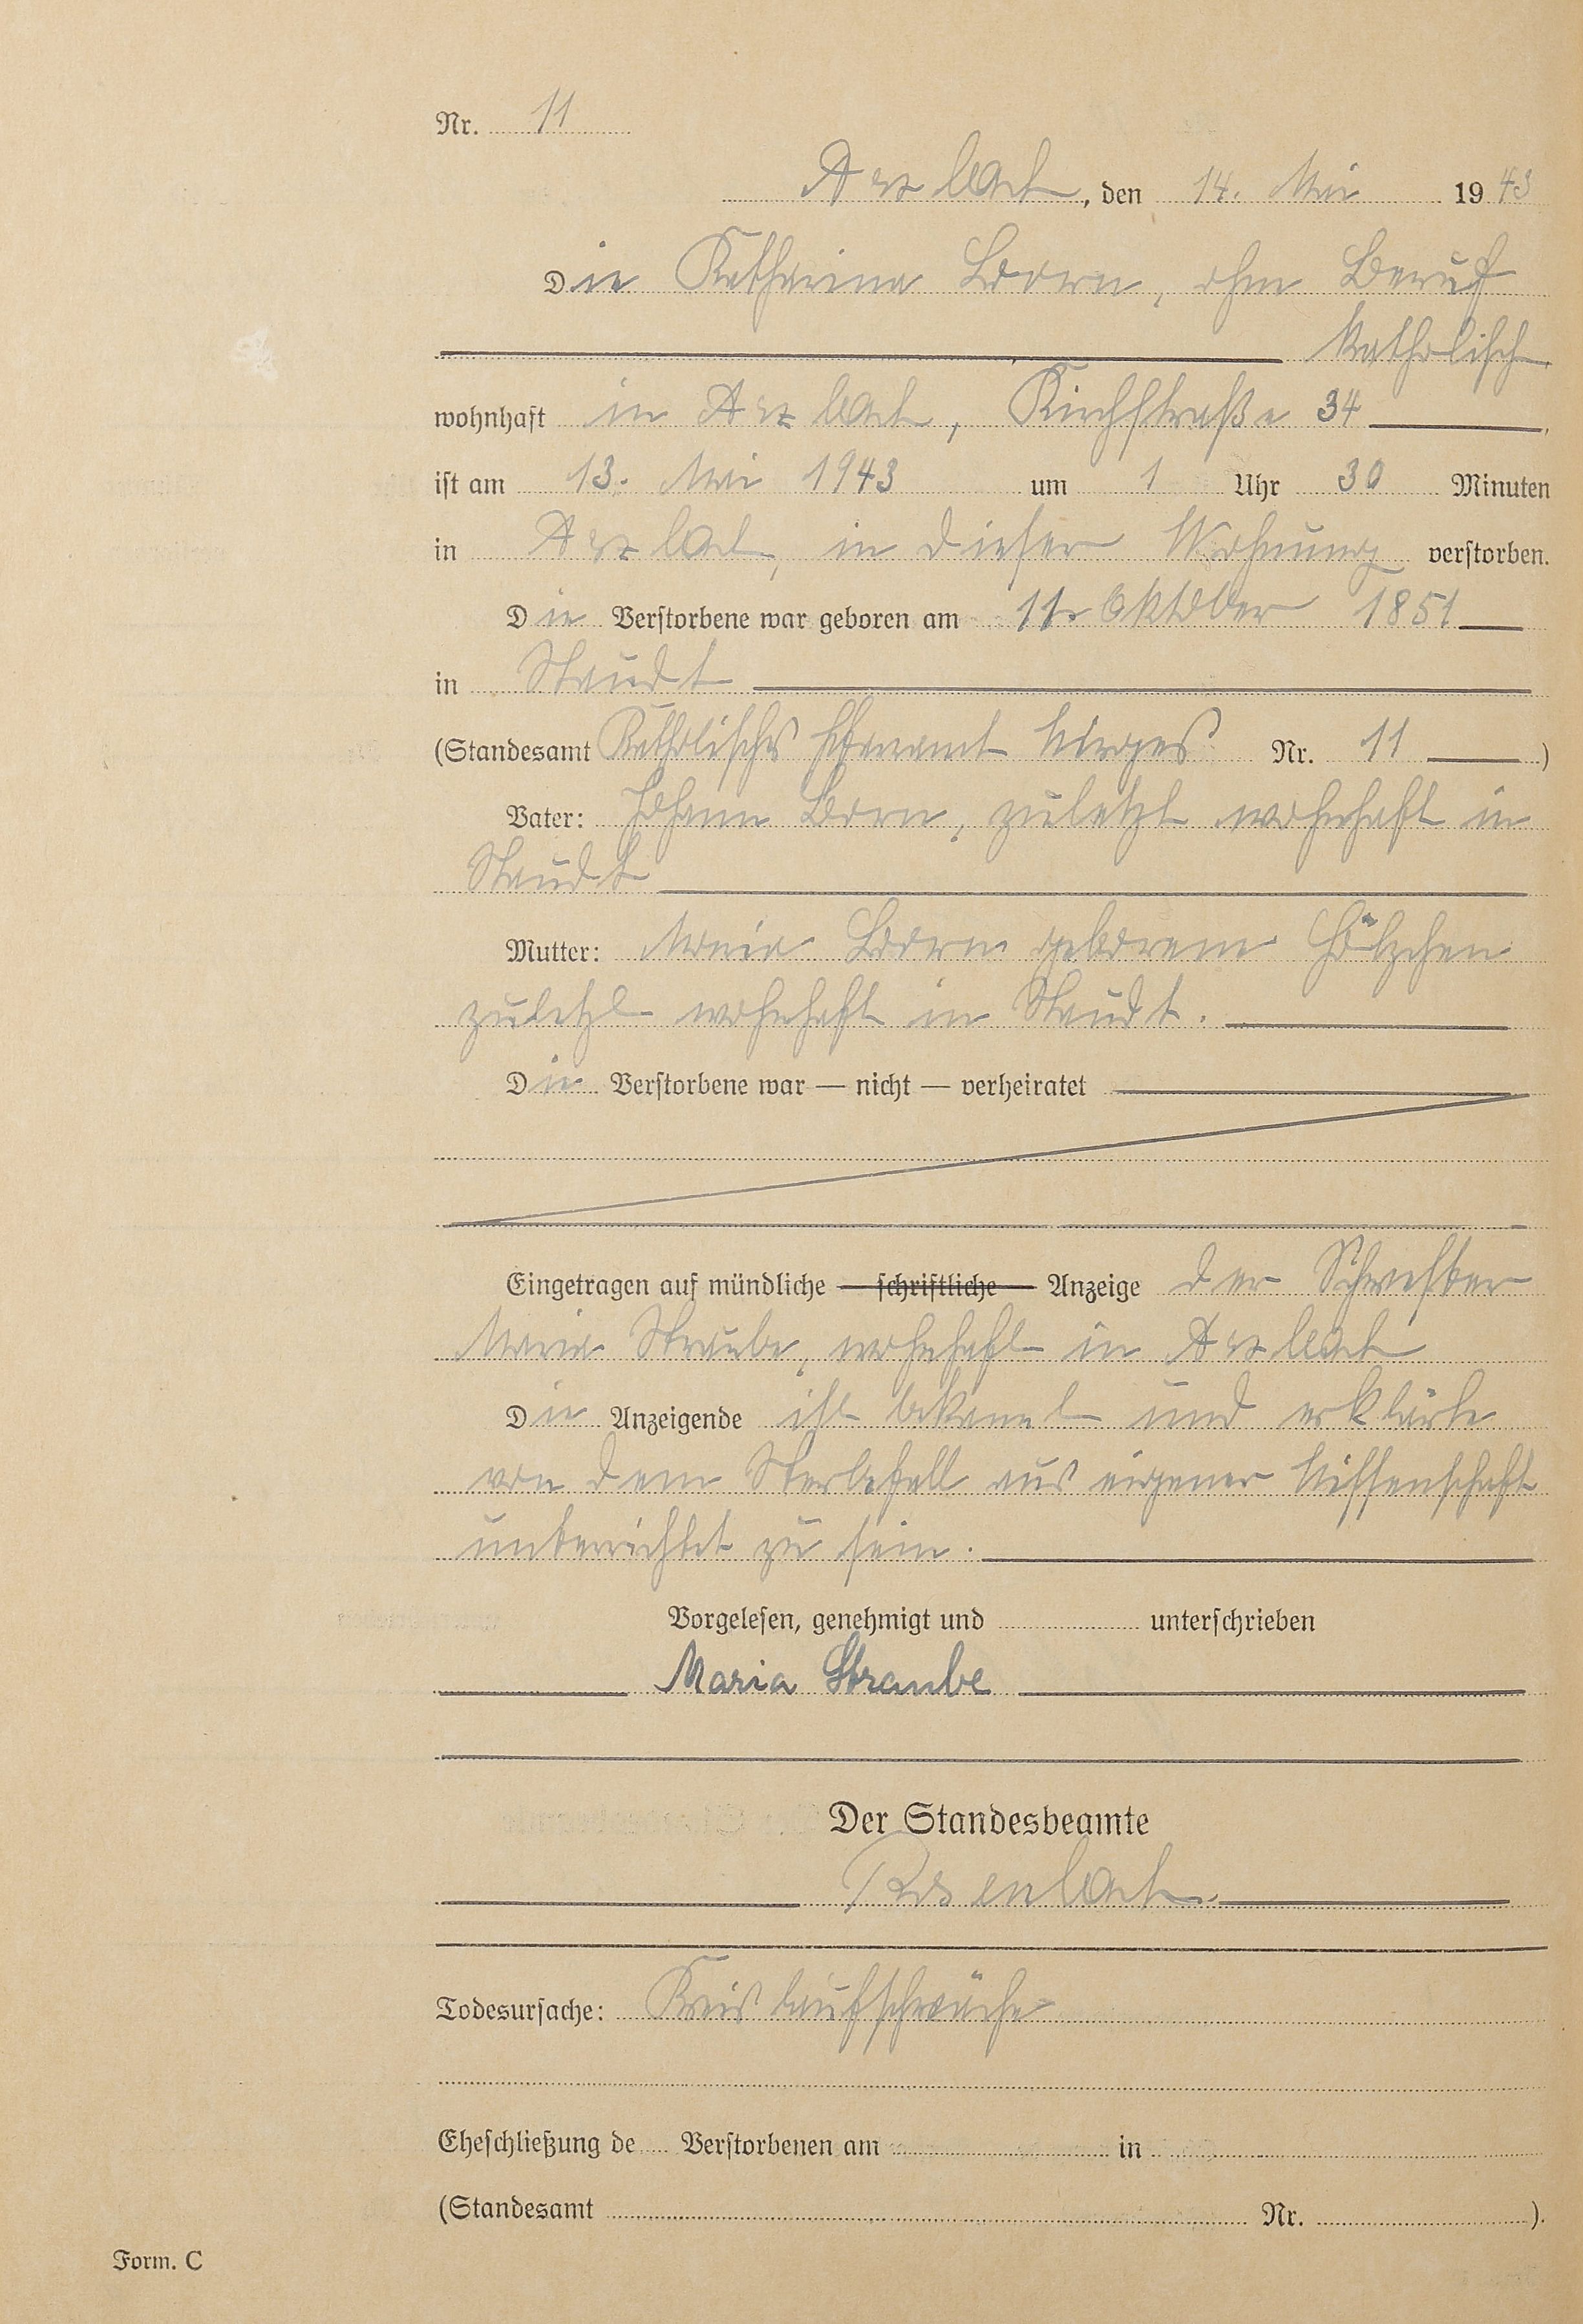 Nr. 11
Arzbach, den 14. Mai 1943
Die Katharina Born, ohne Beruf
katholisch
wohnhaft in Arzbach, Kirchstraße 34
ist am 13. Mai 1943 um 1 Uhr 30 Minuten
in Arzbach, in dieser Wohnung verstorben.
Die Verstorbene war geboren am 11. Oktober 1851
in Staudt
(Standesamt Katholisches Pfarramt Wirges Nr. 11 )
Vater: Johann Born, zuletzt wohnhaft in
Staudt
Mutter: Maria Born geborene Hölzchen
zuletzt wohnhaft in Staudt.
Die Verstorbene war — nicht — verheiratet
Eingetragen auf mündliche — schriftliche — Anzeige der Schwester
Maria Straube, wohnhaft in Arzbach
Die Anzeigende ist bekannt und erklärte
von dem Sterbefall aus eigener Wissenschaft
unterrichtet zu sein.
Vorgelesen, genehmigt und unterschrieben
Maria Straube
Der Standesbeamte
Rosenbach
Todesursache: Kreislaufschwäche
Eheschließung de Verstorbenen am in
(Standesamt Nr. ).
Form. C